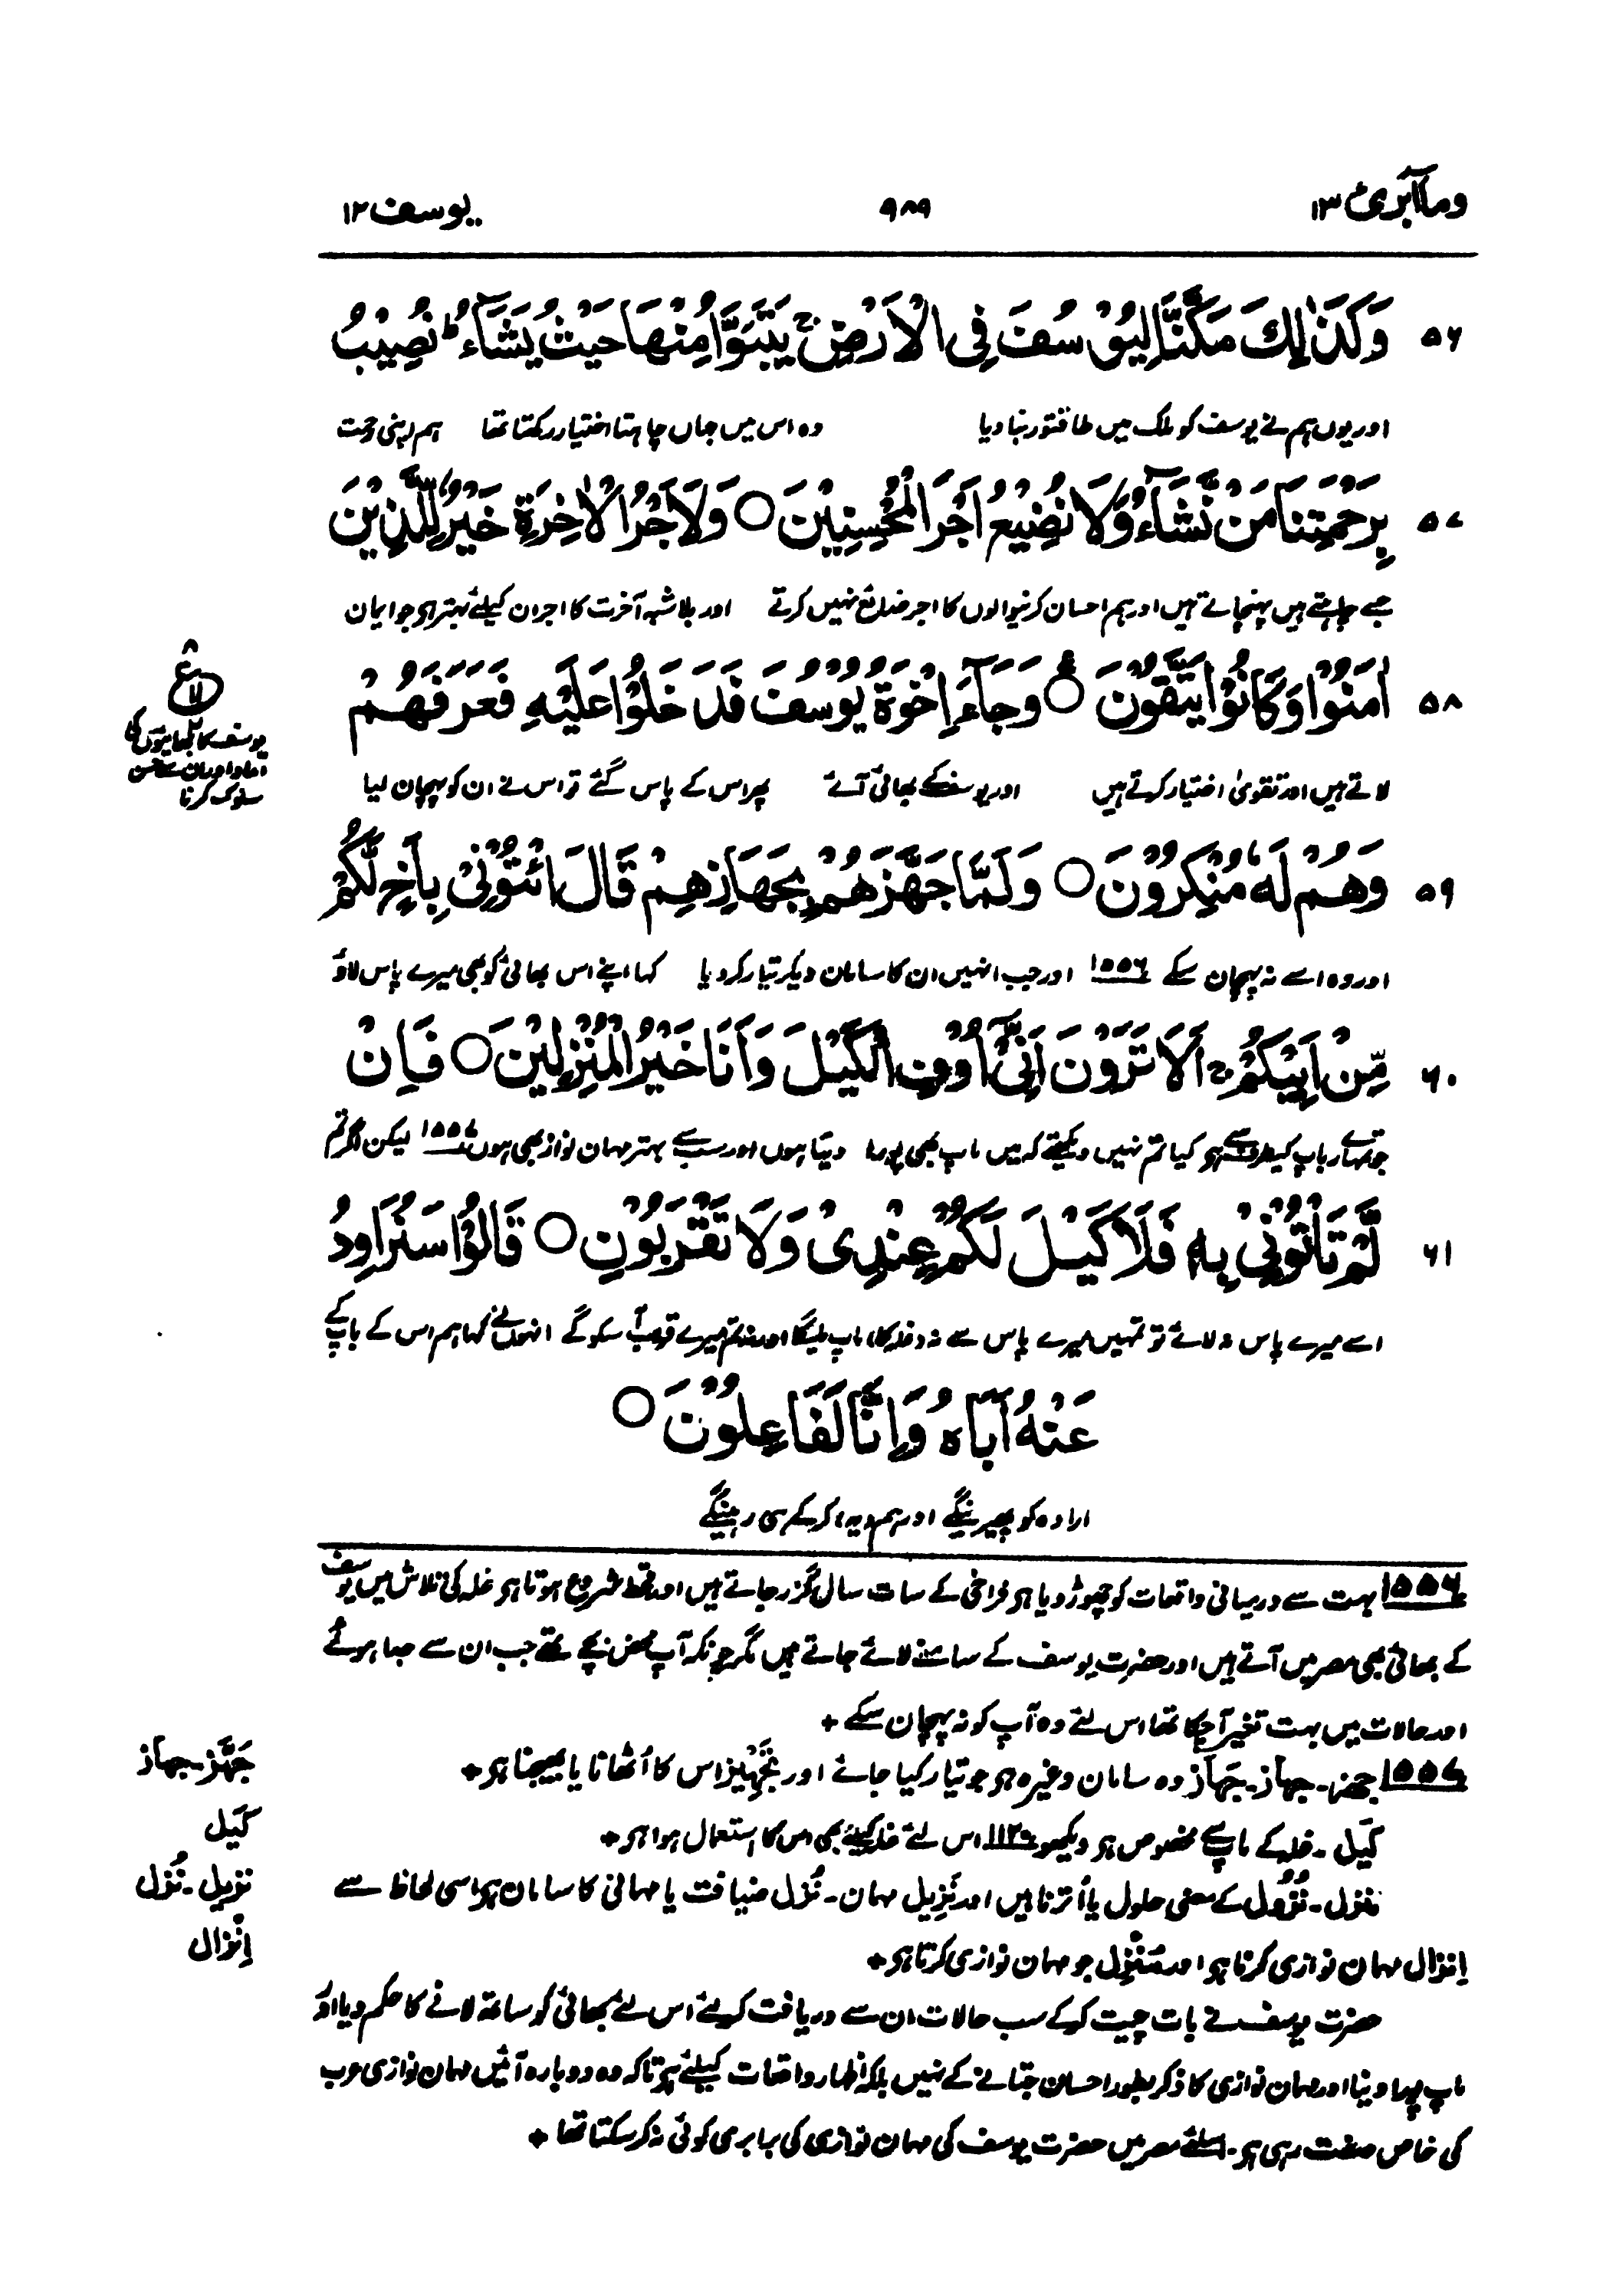 وماابرئ ۱۳
۹۸۹
یوسف ۱۲
۵۶ وَكَذٰلِكَ مَكَّنَّا لِيُوْسُفَ فِى الْاَرْضِ ۚ يَتَبَوَّاُ مِنْهَا حَيْثُ يَشَآءُ ؕ نُصِيْبُ
اور یوں ہم نے یوسف کو ملک میں طاقتور بنا دیا وہ اس میں جہاں چاہتا اختیار رکھتا تھا ہم اپنی رحمت
۵۷ بِرَحْمَتِنَا مَنْ نَّشَآءُ وَلَا نُضِيْعُ اَجْرَ الْمُحْسِنِيْنَ ○ وَلَاَجْرُ الْاٰخِرَةِ خَيْرٌ لِّلَّذِيْنَ
جسے چاہتے ہیں پہنچاتے ہیں اور ہم احسان کرنیوالوں کا اجر ضائع نہیں کرتے اور بلاشبہ آخرت کا اجر ان کیلئے بہتر ہی جو ایمان
۵۸ اٰمَنُوْا وَكَانُوْا يَتَّقُوْنَ ○ وَجَآءَ اِخْوَةُ يُوْسُفَ فَدَخَلُوْا عَلَيْهِ فَعَرَفَهُمْ
لاتے ہیں اور تقویٰ اختیار کرتے ہیں اور یوسف کے بھائی آئے پھر اس کے پاس گئے تو اس نے ان کو پہچان لیا
یوسف کا بھائیوں کی
سلوک کرنا
۵۹ وَهُمْ لَهٗ مُنْكِرُوْنَ ○ وَلَمَّا جَهَّزَهُمْ بِجَهَازِهِمْ قَالَ ائْتُوْنِىْ بِاَخٍ لَّكُمْ
اور وہ اسے نہ پہچان سکے ۱۵۵۶ اور جب انہیں ان کا سامان دیکر تیار کر دیا کہا اپنے اس بھائی کو بھی میرے پاس لاؤ
۶۰ مِّنْ اَبِيْكُمْ ۚ اَلَا تَرَوْنَ اَنِّىْٓ اُوْفِى الْكَيْلَ وَاَنَا خَيْرُ الْمُنْزِلِيْنَ ○ فَاِنْ
جو تمہارے باپ کیطرف سے ہو کیا تم نہیں دیکھتے کہ میں ماپ بھی پورا دیتا ہوں اور سب سے بہتر مہمان نواز بھی ہوں ۱۵۵۷ لیکن اگر تم
۶۱ لَّمْ تَاْتُوْنِىْ بِهٖ فَلَا كَيْلَ لَكُمْ عِنْدِىْ وَلَا تَقْرَبُوْنِ ○ قَالُوْا سَنُرَاوِدُ
اسے میرے پاس نہ لائے تو تمہیں میرے پاس سے نہ (غلہ کا) ماپ ملیگا اور نہ تم میرے قریب آ سکو گے انہوں نے کہا ہم اس کے باپ کے
عَنْهُ اَبَاهُ وَاِنَّا لَفَاعِلُوْنَ ○
ارادہ کو پھیرینگے اور ہم (یہ) کر کے ہی رہینگے
۱۵۵۶ بہت سے درمیانی واقعات کو چھوڑ دیا ہی فراخی کے سات سال گزر جاتے ہیں اور قحط شروع ہوتا ہی غلہ کی تلاش میں یوسف
کے بھائی بھی مصر میں آتے ہیں اور حضرت یوسف کے سامنے لائے جاتے ہیں مگر چونکہ آپ محض بچے تھے جب ان سے جدا ہوئے
اور حالات میں بہت تغیر آ چکا تھا اس لئے وہ آپ کو نہ پہچان سکے +
۱۵۵۷ جھز۔ جہاز۔ جَہَاز وہ سامان وغیرہ ہی جو تیار کیا جائے اور تَجْہِیْز اس کا اُٹھانا یا بھیجنا ہی +
جَہَّز۔ جہاز
کَیْل۔ غلہ کے ماپ سے مخصوص ہی دیکھو ۱۱۲۰ اس لئے غلہ کیلئے بھی اس کا استعمال ہوا ہی +
کَیْل
نُزُول کے معنی حلول یا اُترنا ہیں اور نَزِیل مہمان۔ نُزُل ضیافت یا مہمانی کا سامان ہی اسی لحاظ سے
نزیل۔ نُزُل
اِنْزال مہمان نوازی کرنا ہی اور مُنْزِل جو مہمان نوازی کرتا ہی +
اِنْزال
حضرت یوسف نے بات چیت کر کے سب حالات ان سے دریافت کر لئے اس لئے بھائی کو ساتھ لانے کا حکم دیا اور
ماپ پورا دینا اور مہمان نوازی کا ذکر بطور احسان جتانے کے نہیں بلکہ اظہار واقعات کیلئے ہی تا کہ وہ دوبارہ آئیں مہمان نوازی عرب
کی خاص صفت رہی ہی۔ اسلئے مصر میں حضرت یوسف کی مہمان نوازی کی برابری کوئی نہ کر سکتا تھا +